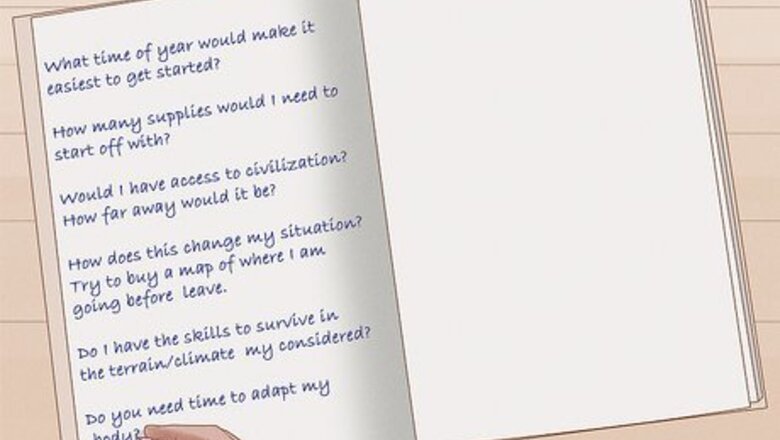 What time of year would make it
easiest to get started?
How many supplies would I need to
start off with?
Would I have access to civilization?
How far away would it be?
How does this change my situation?
Try to buy a map of where I am
going before leave.
Do I have the skills to survive in
the terrain/climate my considered?
Do you need time to adapt my
body?